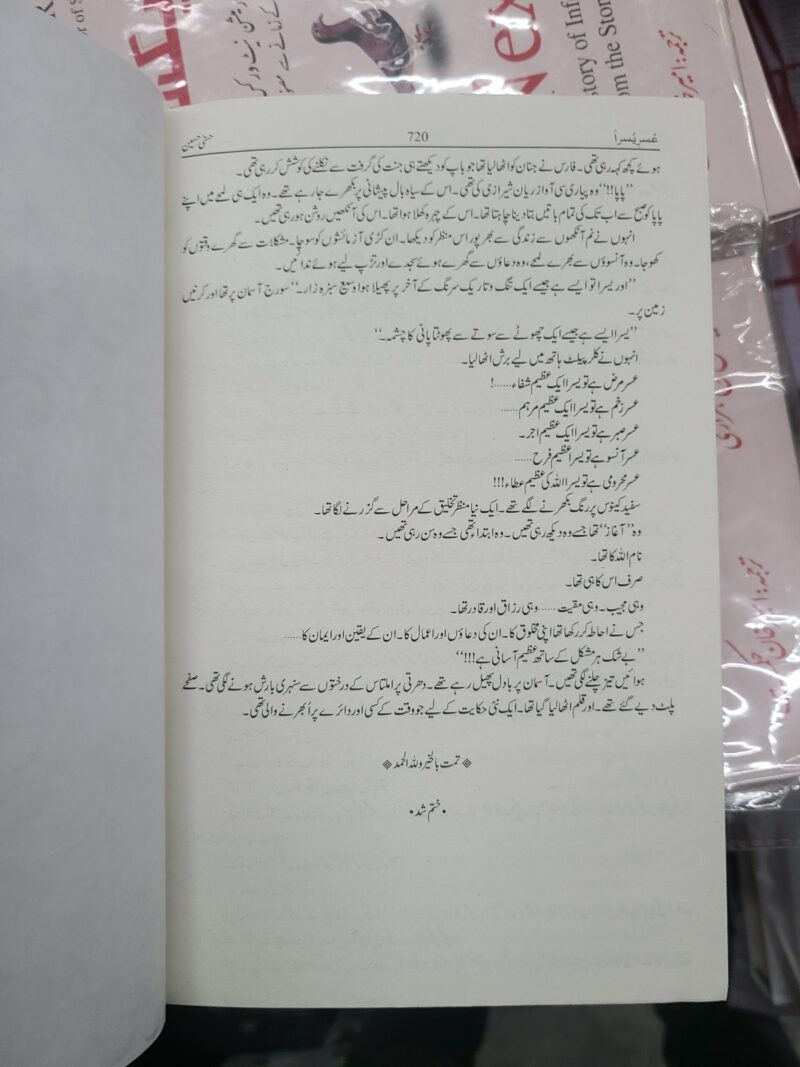 عُسرِ یُسراً 720 حسنیٰ حسین
ہوئے کچھ کہہ رہی تھی۔ فارس نے جنان کو اٹھا لیا تھا جو باپ کو دیکھتے ہی جنت کی گرفت سے نکلنے کی کوشش کر رہی تھی۔
”پاپا!!“ وہ پیاری سی آواز ریان شیرازی کی تھی۔ اس کے سیاہ بال پیشانی پر بکھرے جا رہے تھے۔ وہ ایک ہی لمحے میں اپنے
پاپا کو صبح سے اب تک کی تمام باتیں بتا دینا چاہتا تھا۔ اس کے چہرہ کھلا ہوا تھا۔ اس کی آنکھیں روشن ہو رہی تھیں۔
انہوں نے نم آنکھوں سے زندگی سے بھرپور اس منظر کو دیکھا۔ ان کڑی آزمائشوں کو سوچا۔ مشکلات سے گھرے وقتوں کو
کھوجا۔ وہ آنسوؤں سے بھرے لمحے، وہ دعاؤں سے گھرے ہوئے سجدے اور تڑپ لیے ہوئے ندائیں۔
”اور یسرا تو ایسے ہے جیسے ایک تنگ و تاریک سرنگ کے آخر پر پھیلا ہوا وسیع سبزہ زار۔“ سورج آسمان پر تھا اور کرنیں
زمین پر۔
”یسرا ایسے ہے جیسے ایک چھوٹے سے سوتے سے پھوٹتا پانی کا چشمہ۔“
انہوں نے کلر پیلٹ ہاتھ میں لیے برش اٹھا لیا۔
عسر مرض ہے تو یسرا ایک عظیم شفاء......!
عسر زخم ہے تو یسرا ایک عظیم مرہم......
عسر صبر ہے تو یسرا ایک عظیم اجر۔
عسر آنسو ہے تو یسرا عظیم فرح......
عسر محرومی ہے تو یسرا اللہ کی عظیم عطاء!!!
سفید کینوس پر رنگ بکھرنے لگے تھے۔ ایک نیا منظر تخلیق کے مراحل سے گزرنے لگا تھا۔
وہ ”آغاز“ تھا جسے وہ دیکھ رہی تھیں۔ وہ ابتداء تھی جسے وہ سن رہی تھیں۔
نام اللہ کا تھا۔
صرف اس کا ہی تھا۔
وہی مجیب۔ وہی مقیت......وہی رزاق اور قادر تھا۔
جس نے احاطہ کر رکھا تھا اپنی مخلوق کا۔ ان کی دعاؤں اور اعمال کا۔ ان کے یقین اور ایمان کا......
”بے شک ہر مشکل کے ساتھ عظیم آسانی ہے!!!“
ہوائیں تیز چلنے لگی تھیں۔ آسمان پر بادل پھیل رہے تھے۔ دھرتی پر املتاس کے درختوں سے سنہری بارش ہونے لگی تھی۔ صفحے
پلٹ دیے گئے تھے۔ اور قلم اٹھا لیا گیا تھا۔ ایک نئی حکایت کے لیے جو وقت کے کسی اور دائرے پر اُبھرنے والی تھی۔
تمت بالخیر وللہ الحمد
• ختم شد •
Nex
tory of Inf
from the Stor